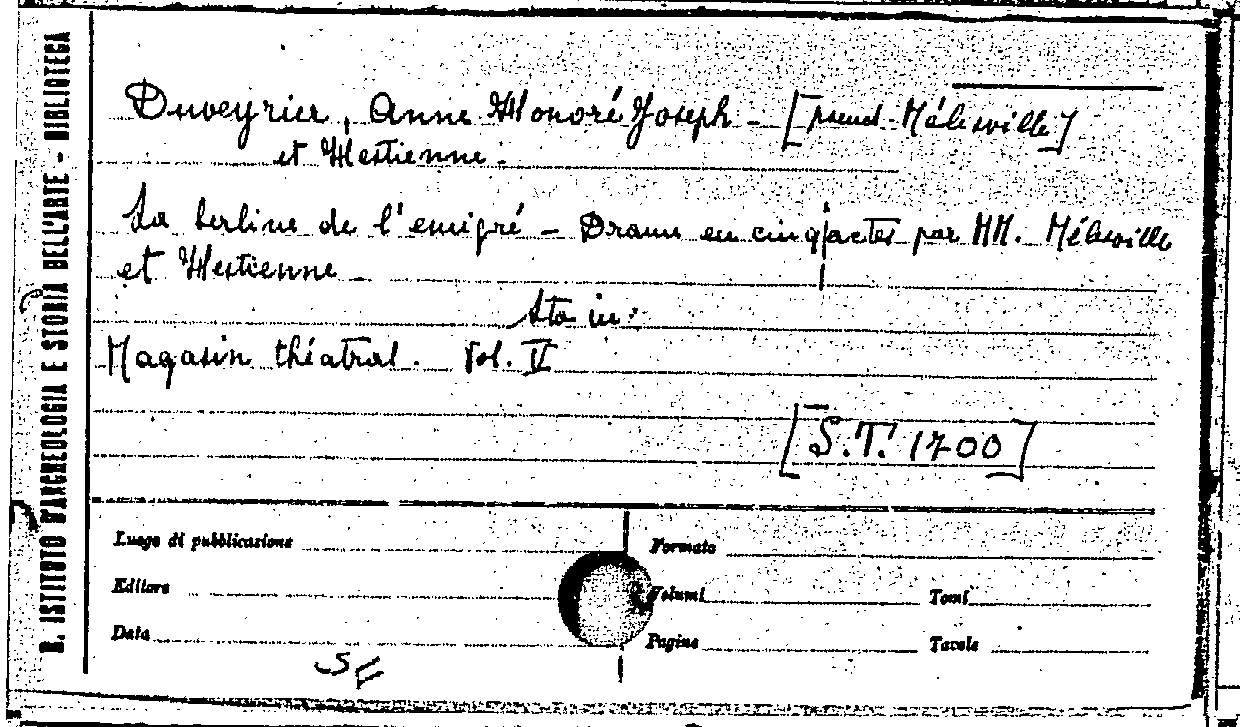 R. ISTITUTO D'ARCHEOLOGIA E STORIA DELL'ARTE - BIBLIOTECA
Duveyrier, Anne Honoré Joseph - [pseud. Mélesville]
et Hestienne.
La berline de l'emigré - Drame en cinq actes par MM. Mélesville
et Hestienne -
Sta in:
Magasin théatral. Vol. V
[S.T. 1700]
Luogo di pubblicazione
Formato
Editore
Volumi
Tomi
Data
Pagine
Tavole